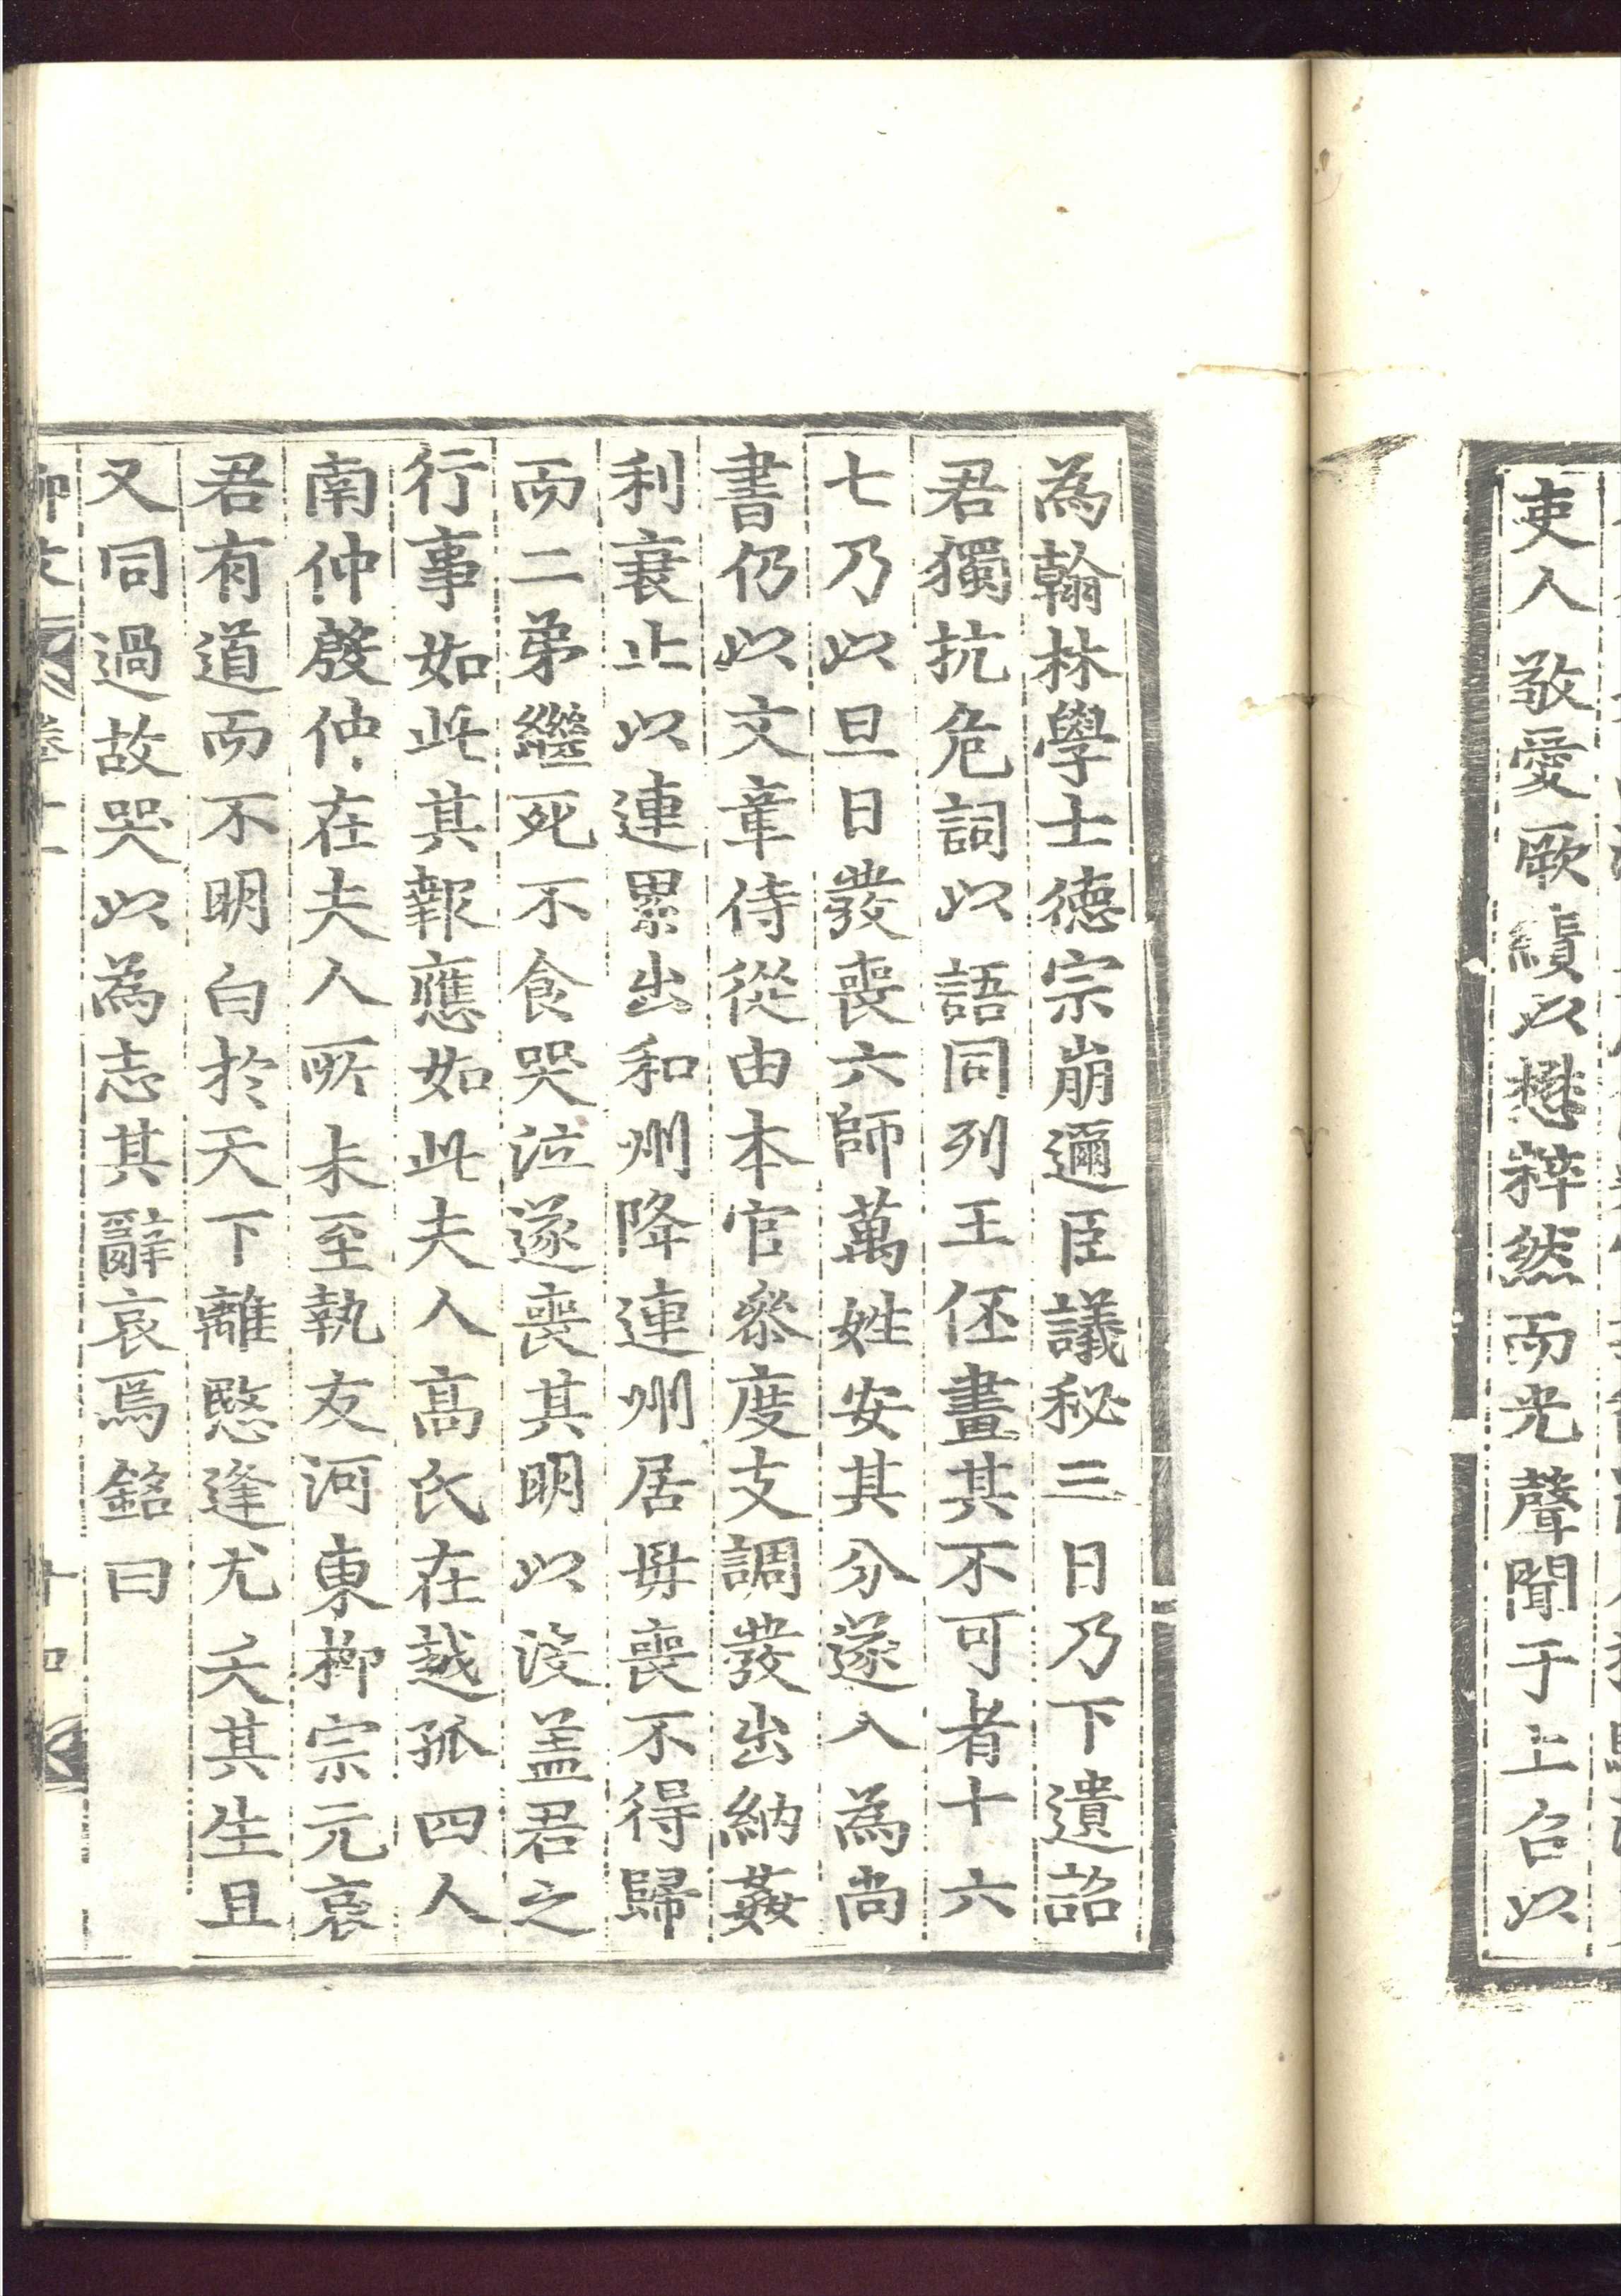 吏人敬愛厥績以懋粹然而光聲聞于上召以
為翰林學士德宗崩邇臣議秘三日乃下遺詔
君獨抗危詞以語同列王伾畫其不可者十六
七乃以旦日發喪六師萬姓安其分遂入為尚
書仍以文章侍從由本官叅度支調發出納姦
利衰止以連累出和州降連州居母喪不得歸
而二弟繼死不食哭泣遂喪其明以沒盖君之
行事如此其報應如此夫人高氏在越孤四人
南仲殷仲在夫人所未至執友河東柳宗元哀
君有道而不明白於天下離愍逢尤夭其生且
又同過故哭以為志其辭哀焉銘曰